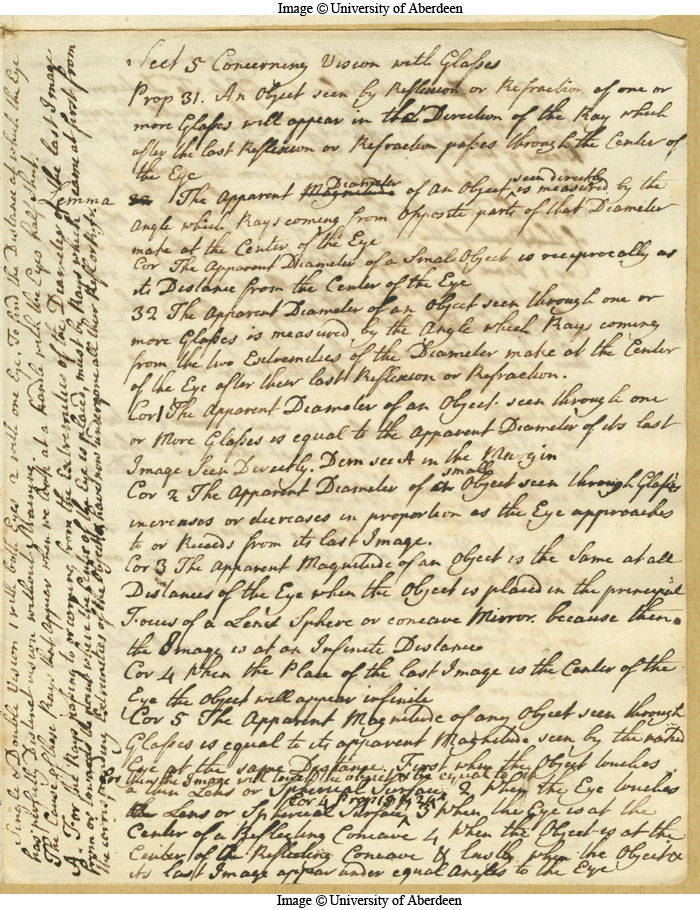 Image © University of Aberdeen
Sect 5 Concerning Vision with Glasses
Prop 31. An Object seen by Reflexion or Refraction of one or
more Glasses will appear in that Direction of the Ray which
after the last Reflexion or Refraction passes through the Center of
the Eye
Lemma 1 The Apparent Magnitude Diameter of an Object seen directly is measured by the
Angle which Rays coming from Opposite parts of that Diameter
make at the Center of the Eye
Cor The Apparent Diameter of a Small Object is reciprocally as
its Distance from the Center of the Eye
32 The Apparent Diameter of an Object seen through one or
more Glasses is measured by the Angle which Rays coming
from the two Extremities of the Diameter make at the Center
of the Eye after their last Reflexion or Refraction.
Cor 1 The Apparent Diameter of an Object seen through one
or More Glasses is equal to the Apparent Diameter of its last
Image Seen Directly. Dem see A in the Margin
Cor 2 The Apparent Diameter of an small Object seen through Glasses
increases or decreases in proportion as the Eye approaches
to or Receeds from its last Image.
Cor 3 The Apparent Magnitude of an Object is the Same at all
Distances of the Eye when the Object is placed in the principal
Focus of a Lens Sphere or concave Mirror. because then
the Image is at an Infinite Distance
Cor 4 When the Place of the last Image is the Center of the
Eye the Object will appear infinite
Cor 5 The Apparent Magnitude of any Object seen through
Glasses is equal to its apparent Magnitude seen by the naked
Eye at the same Distance. First when the Object touches
for then the Image will touch the object & be equal to it
a thin Lens or Spherical Surface, 2 When the Eye touches
Cor 4 Prop
the Lens or Spherical Surface, 3 When the Eye is at the
Center of a Reflecting Concave 4 When the Object is at the
Center of the Reflecting Concave & lastly when the Object &
its last Image appear under equal Angles to the Eye
Single & Double Vision 1 with both Eyes 2 with one Eye. To find the Distance at which the Eye
has perfectly Distinct vision without straining.
The Cause of those Rays that appear when we look at a Candle with the Eyes half Shut.
A. For the Rays going to or coming from the Extremities of the Diameter of the last Image
from or towards the point where the Center of the Eye is placed must be Rays which came at first from
the corresponding Extremities of the Object & have now undergone all their Refl or Refr
Image © University of Aberdeen